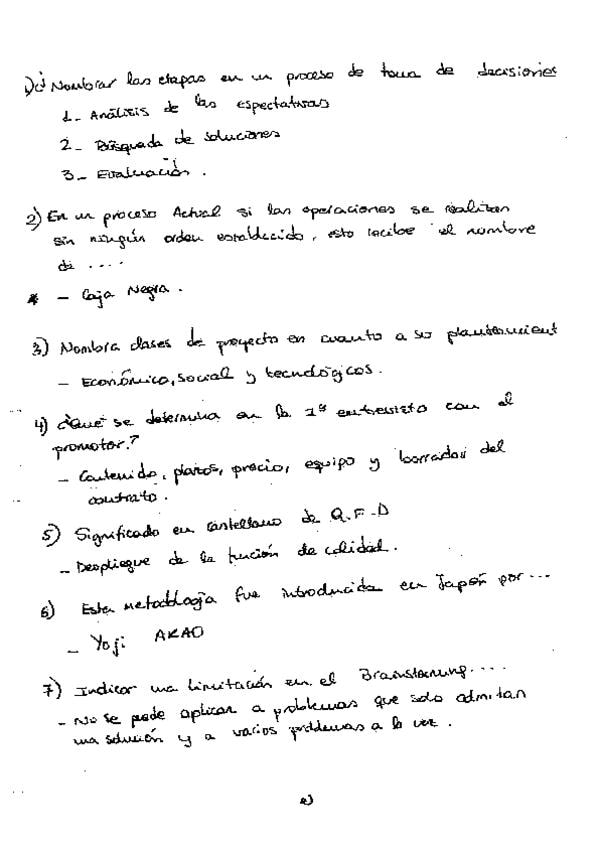 1) Nombrar las etapas en un proceso de toma de decisiones
1- Análisis de las espectativas
2- Búsqueda de soluciones
3- Evaluación.
2) En un proceso Actual si las operaciones se realizan
sin ningún orden establecido, esto recibe el nombre
de ....
* - Caja Negra.
3) Nombra clases de proyecto en cuanto a su planteamient
- Económico, social y tecnológicos.
4) ¿Qué se determina en la 1ª entrevista con el
promotor?
- Contenido, plazos, precio, equipo y borrador del
contrato.
5) Significado en castellano de Q.F.D
- Despliegue de la función de calidad.
6) Esta metodología fue introducida en Japón por ...
- Yoji AKAO
7) Indicar una limitación en el Brainstorming....
- No se puede aplicar a problemas que solo admitan
una solución y a varios problemas a la vez.